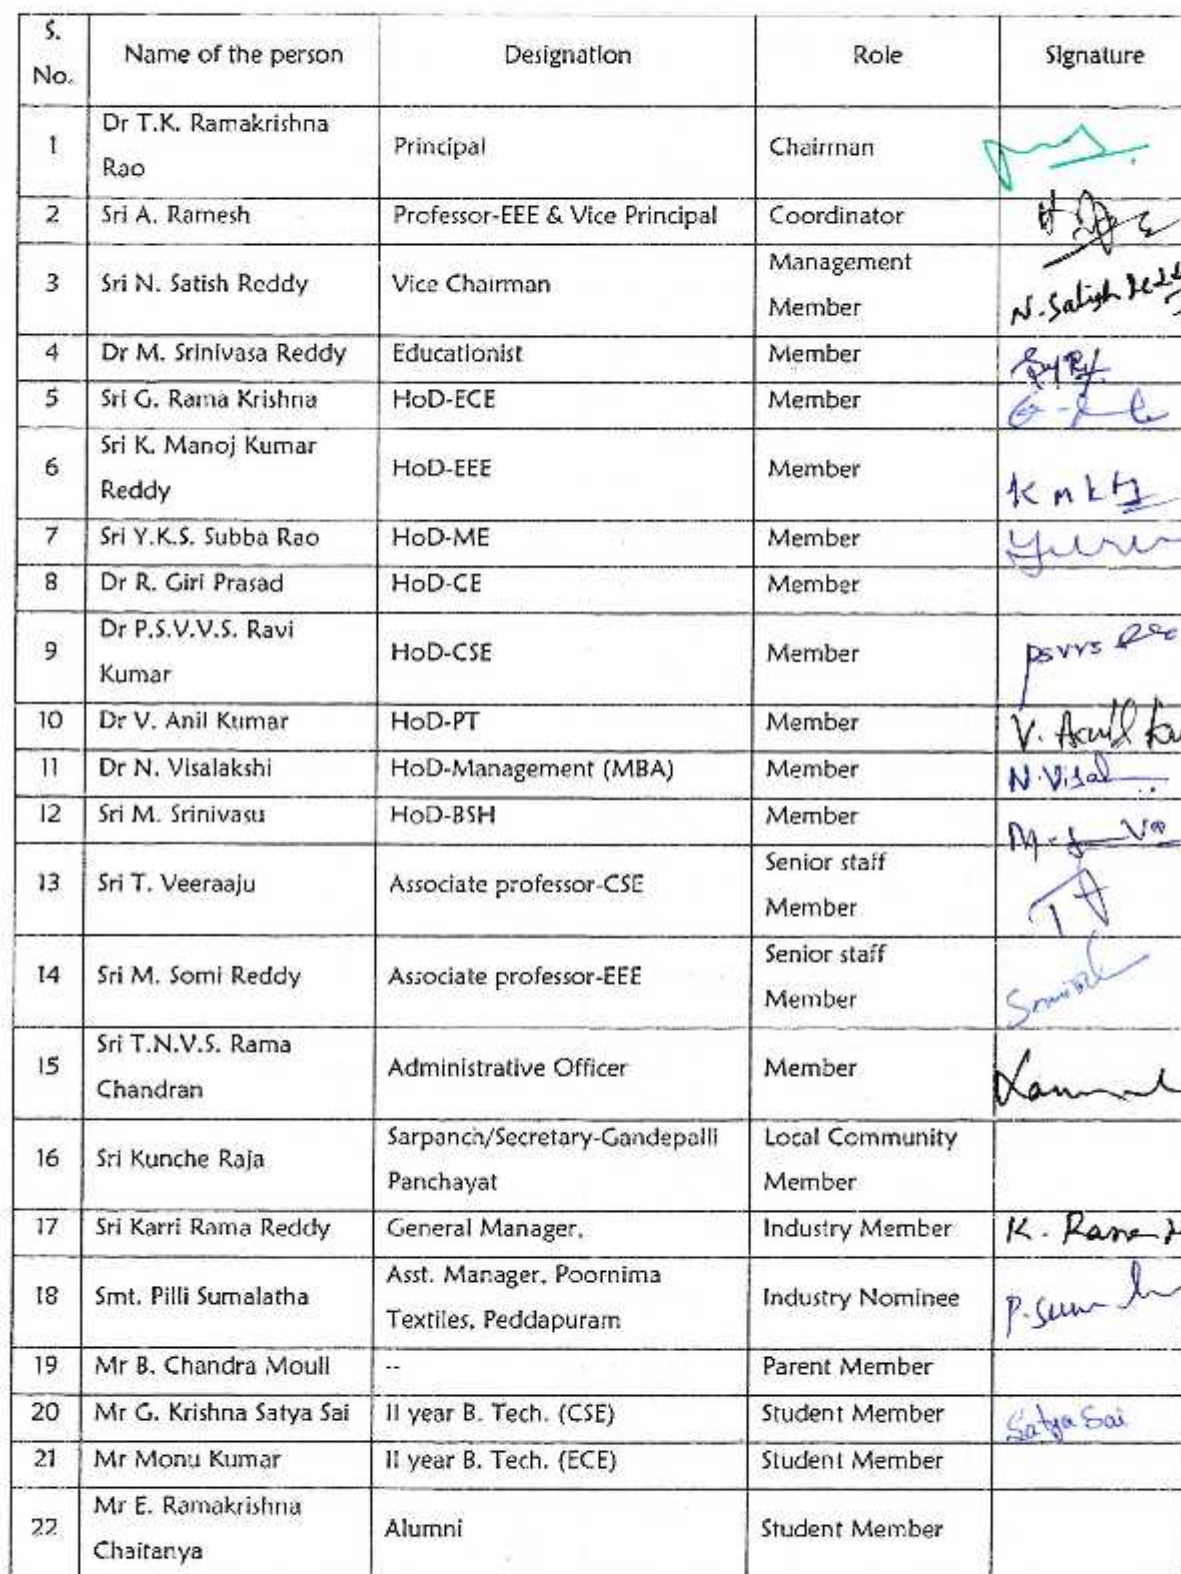 S.
No.
Name of the person
Designation
Role
Signature
1
Dr T.K. Ramakrishna
Rao
Principal
Chairman
2
Sri A. Ramesh
Professor-EEE & Vice Principal
Coordinator
3
Sri N. Satish Reddy
Vice Chairman
Management
Member
N. Satish Redd
4
Dr M. Srinivasa Reddy
Educationist
Member
5
Sri G. Rama Krishna
HoD-ECE
Member
6
Sri K. Manoj Kumar
Reddy
HoD-EEE
Member
7
Sri Y.K.S. Subba Rao
HoD-ME
Member
8
Dr R. Giri Prasad
HoD-CE
Member
9
Dr P.S.V.V.S. Ravi
Kumar
HoD-CSE
Member
10
Dr V. Anil Kumar
HoD-PT
Member
V. Anil
11
Dr N. Visalakshi
HoD-Management (MBA)
Member
N. Visal
12
Sri M. Srinivasu
HoD-BSH
Member
13
Sri T. Veeraaju
Associate professor-CSE
Senior staff
Member
14
Sri M. Somi Reddy
Associate professor-EEE
Senior staff
Member
15
Sri T.N.V.S. Rama
Chandran
Administrative Officer
Member
16
Sri Kunche Raja
Sarpanch/Secretary-Gandepalli
Panchayat
Local Community
Member
17
Sri Karri Rama Reddy
General Manager,
Industry Member
K. Rama
18
Smt. Pilli Sumalatha
Asst. Manager, Poornima
Textiles, Peddapuram
Industry Nominee
19
Mr B. Chandra Mouli
--
Parent Member
20
Mr G. Krishna Satya Sai
II year B. Tech. (CSE)
Student Member
Satya Sai
21
Mr Monu Kumar
II year B. Tech. (ECE)
Student Member
22
Mr E. Ramakrishna
Chaitanya
Alumni
Student Member